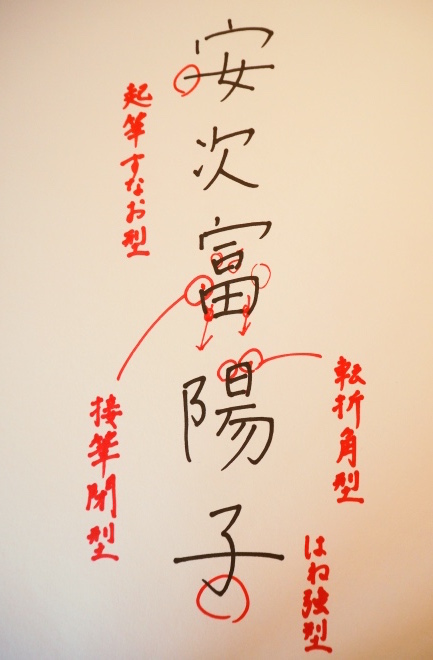 安次富陽子
起筆すなお型
接筆閉型
転折角型
はね強型